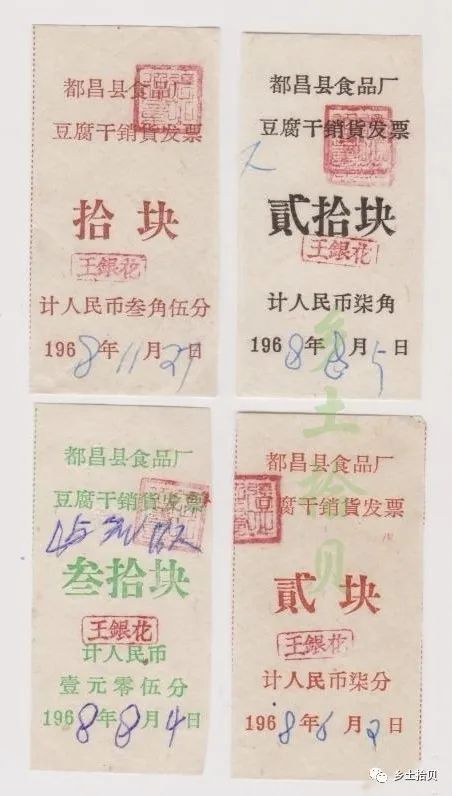 都昌县食品厂
豆腐干销貨发票
拾块
王銀花
计人民币叁角伍分
1968年11月27日
都昌县食品厂
豆腐干銷貨发票
貳拾块
王銀花
计人民币柒角
1968年8月5日
都昌县食品厂
豆腐干销貨发票
叁拾块
王銀花
计人民币
壹元零伍分
1968年8月4日
都昌县食品厂
豆腐干销貨发票
貳块
王銀花
计人民币柒分
1968年6月2日
乡土拾贝
乡土拾贝